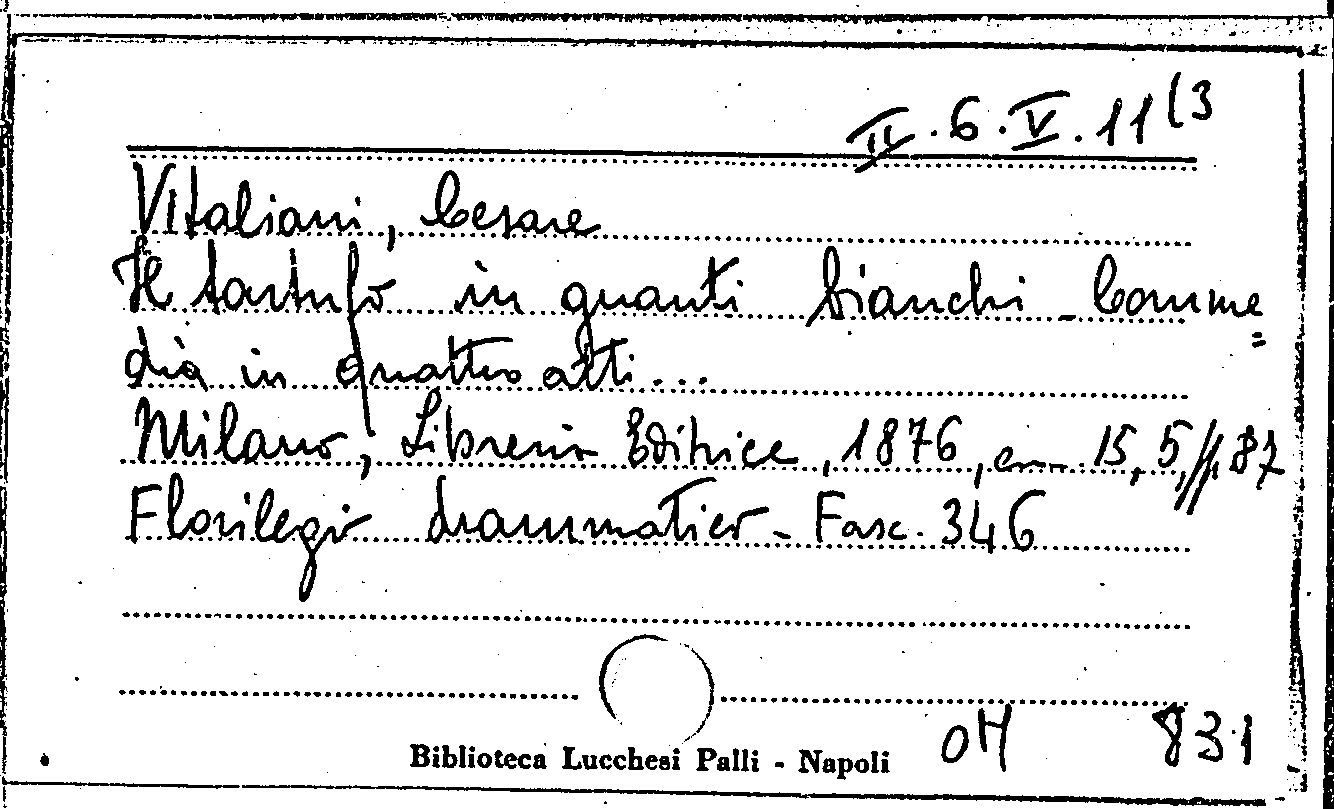 II.6.V.11(3
Vitaliani, Cesare
Il tartufo in guanti bianchi - Comme=
dia in quattro atti...
Milano, Libreria Editrice, 1876, cm. 15,5, pp. 87
Florilegio drammatico - Fasc. 346
Biblioteca Lucchesi Palli - Napoli
831